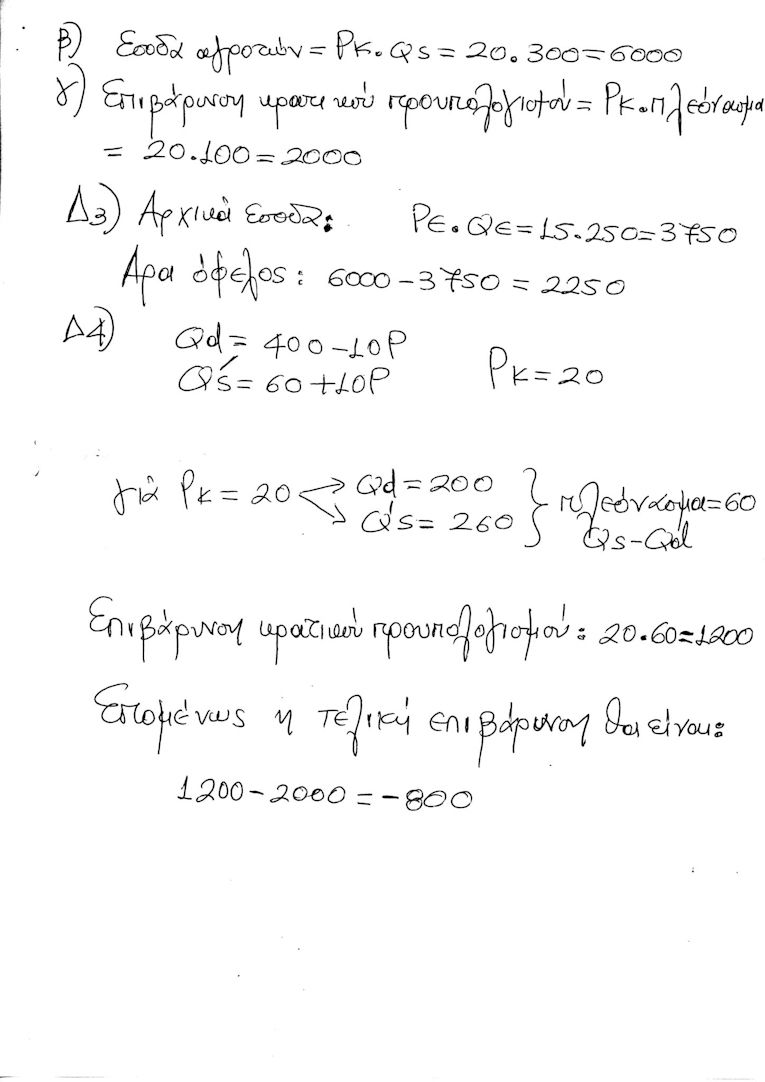 β) Έσοδα αγροτών = Pκ. Qs = 20. 300 = 6000
γ) Επιβάρυνση κρατικού προυπολογισμού = Pκ. πλεόνασμα
= 20.100 = 2000
Δ3) Αρχικά έσοδα: PE. QE = 15. 250 = 3750
Άρα όφελος: 6000 - 3750 = 2250
Δ4) Qd = 400 - 10P
Q's = 60 + 10P Pκ = 20
για Pκ = 20 Qd = 200 πλεόνασμα = 60
Q's = 260 Qs - Qd
Επιβάρυνση κρατικού προυπολογισμού: 20.60 = 1200
Επομένως η τελική επιβάρυνση θα είναι:
1200 - 2000 = - 800